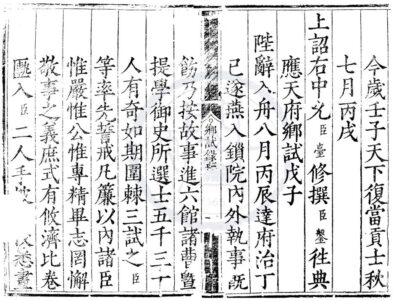 今歲壬子天下復當貢士秋
七月丙戌
上詔右中允臣臺修撰臣鏊徃典
應天府鄉試戊子
陛辭入舟八月丙辰達府治丁
已遂燕入鎖院內外執事旣
鄉試録
飭乃按故事進六館諸曹曁
提學御史所選士五千三十
人有奇如期圍棘三試之臣
等率先誓戒凡簾以內諸臣
惟嚴惟公惟專精畢志罔懈
敬事之義庶式有攸濟比卷
匭入臣二人手 悉